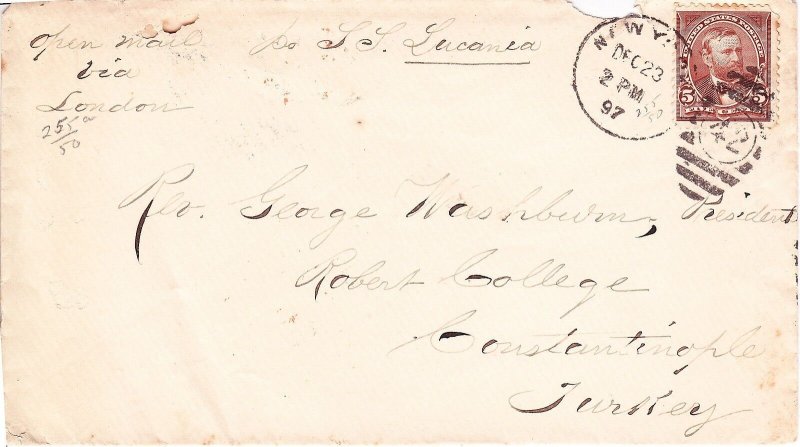 open mail per S.S. Lucania
via
London
255
50
NEW Y
DEC 23
2 PM
97
255
50
UNITED STATES POSTAGE
5 5
Rev. George Washburn, President
Robert College
Constantinople
Turkey